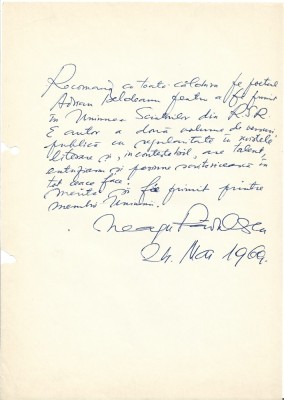 Recomand cu toată căldura pe poetul
Adrian Beldeanu pentru a fi primit
în Uniunea Scriitorilor din RSR.
E autor a două volume de versuri,
publică cu regularitate în revistele
literare și, incontestabil, are talent,
entuziasm și pasiune scriitoricească în
tot ceea ce face.
Merită să fie primit printre
membrii Uniunii.
Neagu Rădulescu
24. Mai 1969.